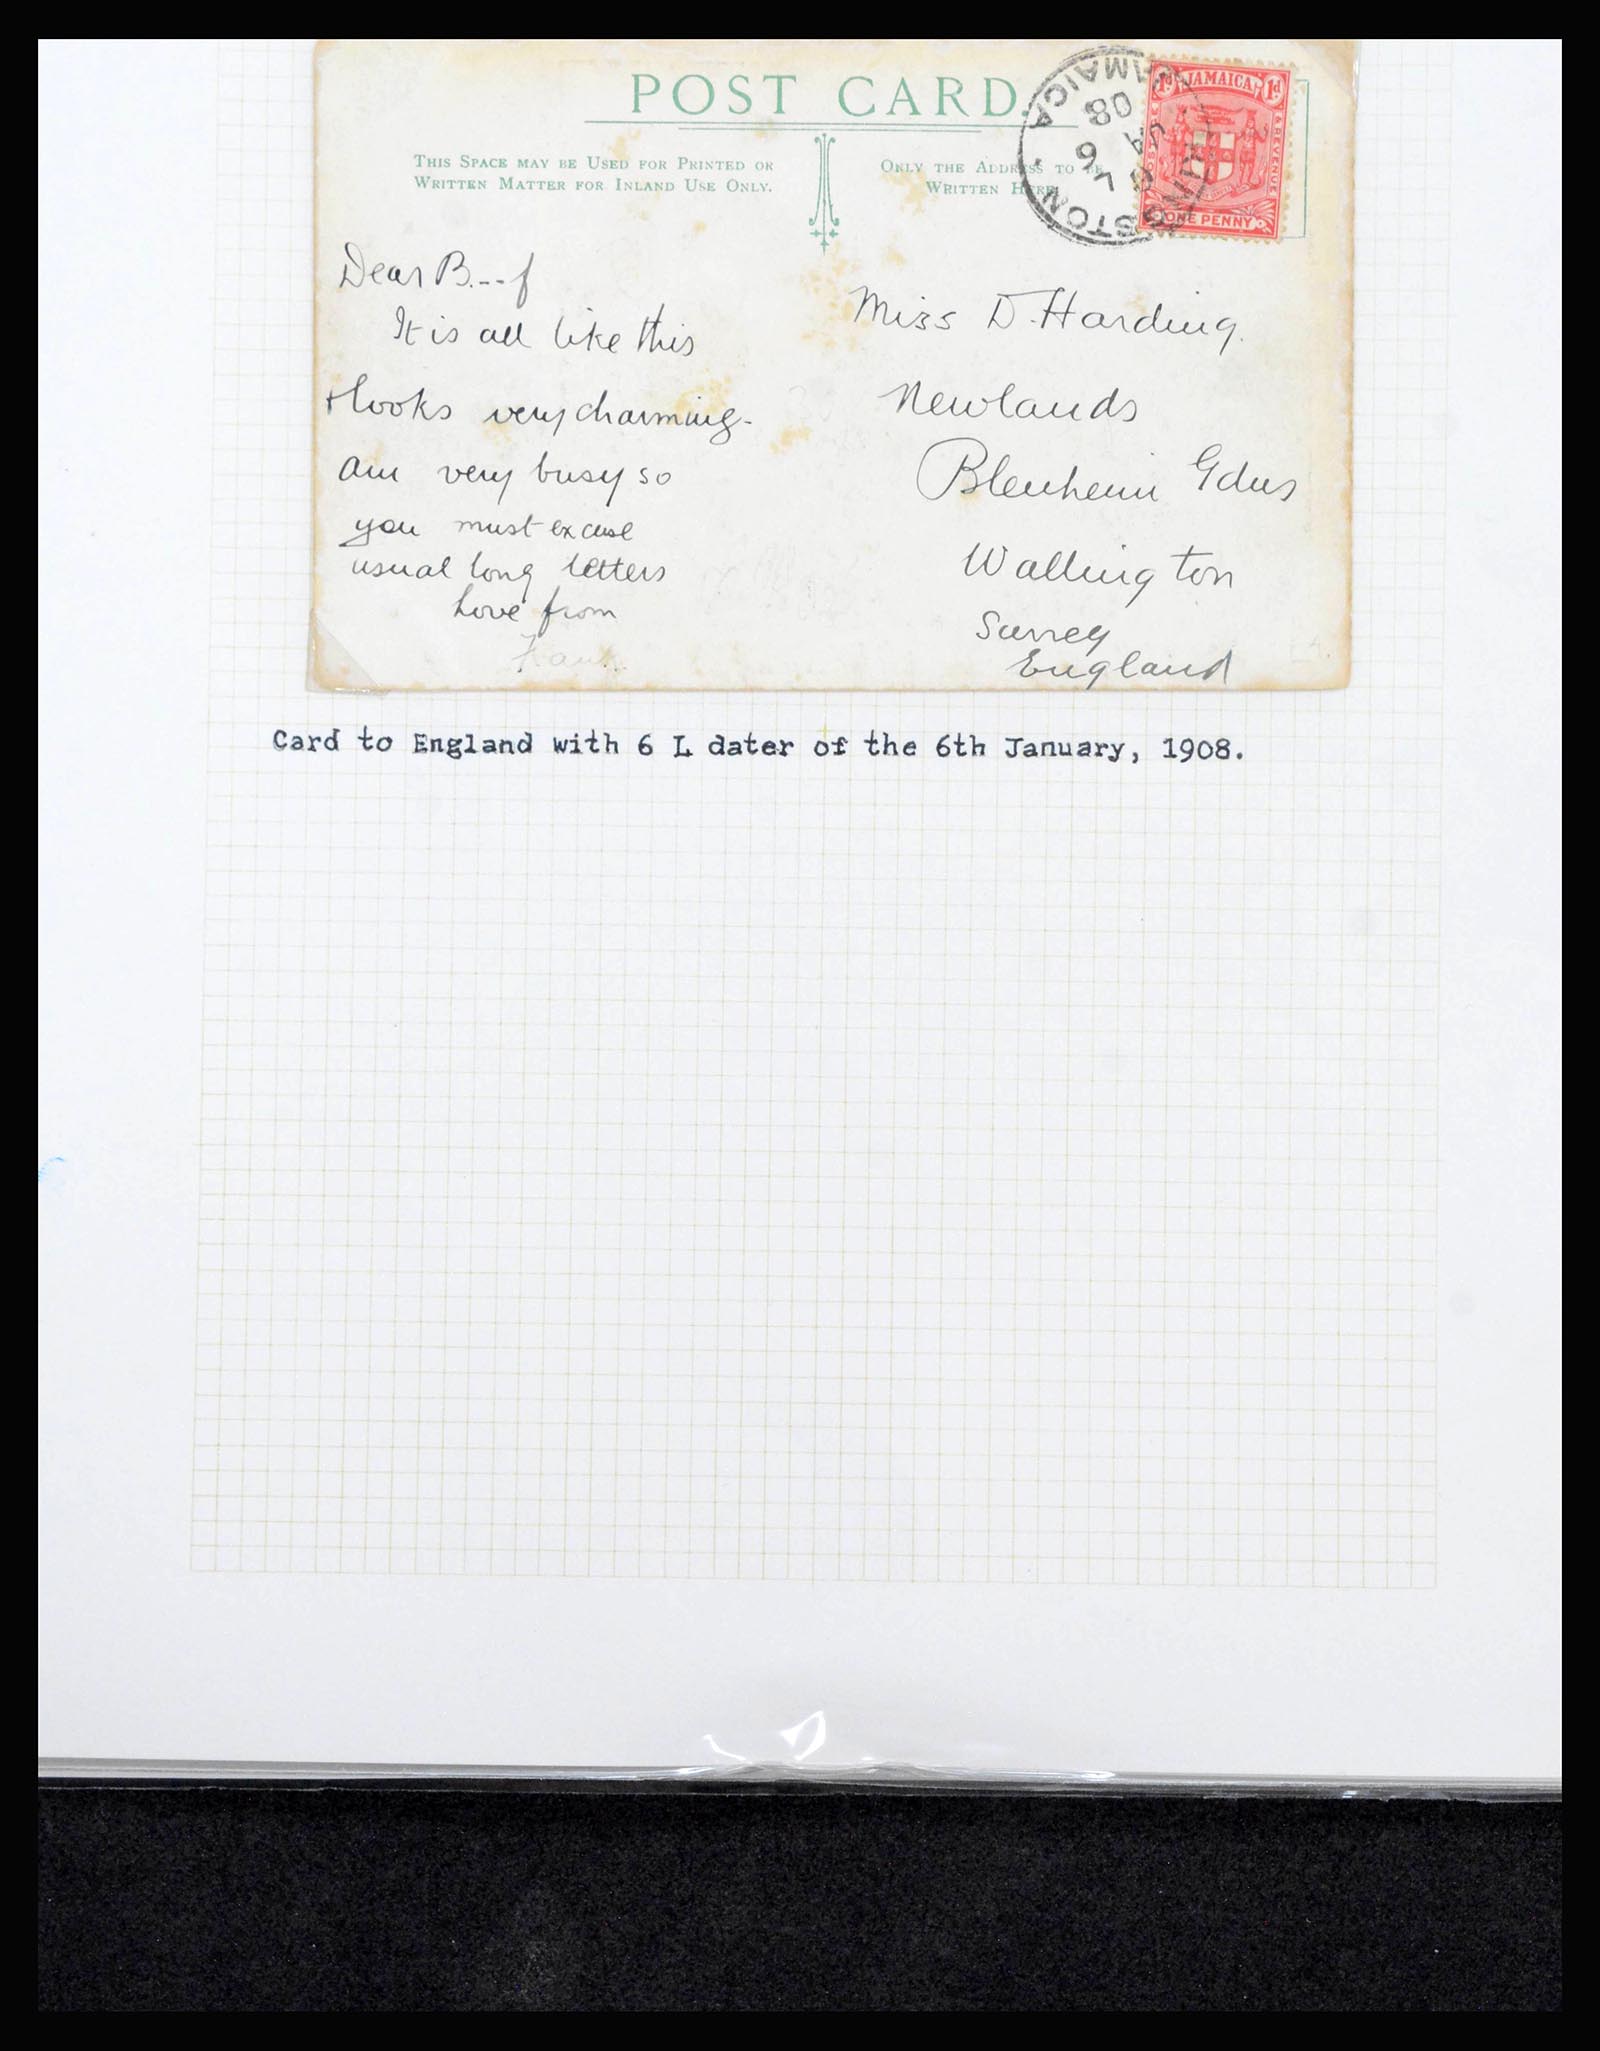 POST CARD.
THIS SPACE MAY BE USED FOR PRINTED OR
WRITTEN MATTER FOR INLAND USE ONLY.
ONLY THE ADDRESS TO BE
WRITTEN HERE
KINGSTON JAMAICA
6 L
JA 6
08
JAMAICA
1d 1d
POSTAGE & REVENUE
ONE PENNY
Dear B.--f
It is all like this
+ looks very charming-
am very busy so
you must excuse
usual long letters
Love from
Miss D. Harding.
Newlands
Blenheim Gdns
Wallington
Surrey
England
Card to England with 6 L dater of the 6th January, 1908.